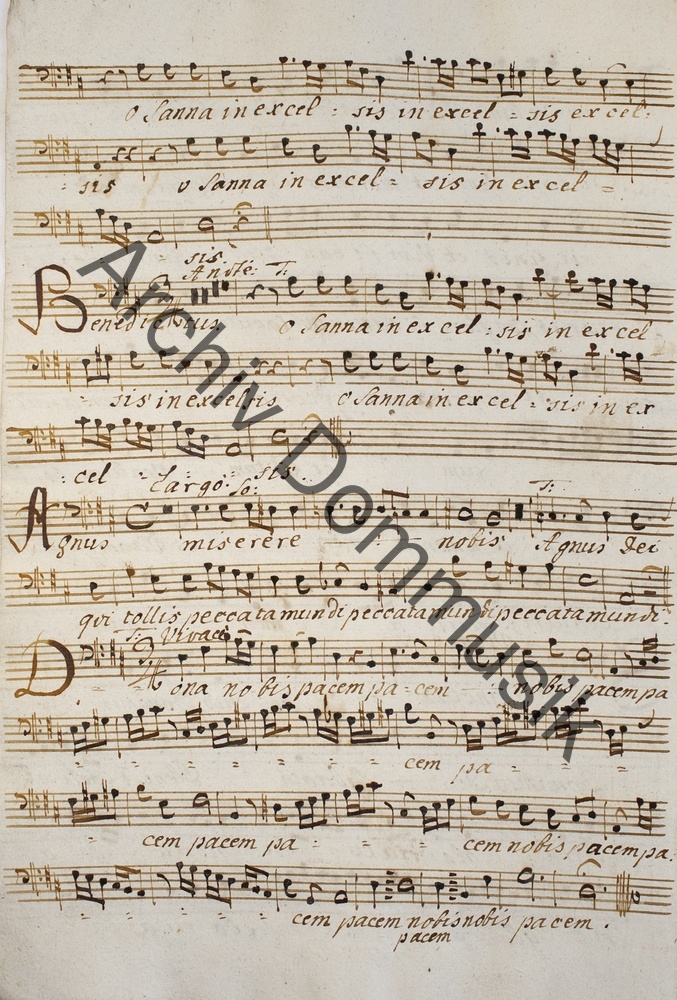 O Sanna in excel = sis in excel = sis excel:
: sis o Sanna in excel = sis in excel =
sis.
Andte: T:
Benedictus O Sanna in excel : sis in excel
= sis in excelsis O Sanna in excel = sis in ex
: cel = = sis.
Largo: So: T:
Agnus miserere = : = nobis Agnus Dei
qui tollis peccata mundi peccata mundi peccata mundi.
T: Vivace
Dona nobis pacem pa = cem = : nobis pacem pa
= = = = = = = cem pa = = =
= cem pacem pa : = = cem nobis pacem pa:
= = = = = cem pacem nobis nobis pacem.
pacem
Archiv Dommusik